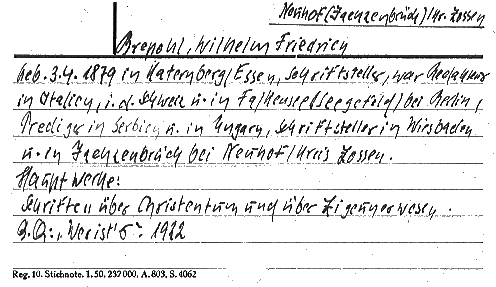 Neuhof (Jachzenbrück)/Kr. Zossen
Brepohl, Wilhelm Friedrich
geb. 3.4. 1879 in Katernberg/Essen, Schriftsteller, war Redakteur
in Italien, i. d. Schweiz u. in Falkensee (Seegefeld) bei Berlin,
Prediger in Serbien u. in Ungarn, Schriftsteller in Wiesbaden
u. in Jachzenbrück bei Neuhof/Kreis Zossen.
Hauptwerke:
Schriften über Christentum und über Zigeunerwesen.
B.Q.: „Wer ist's" 1922
Reg. 10. Stichnote. 1. 50. 237 000. A. 803. S. 4062